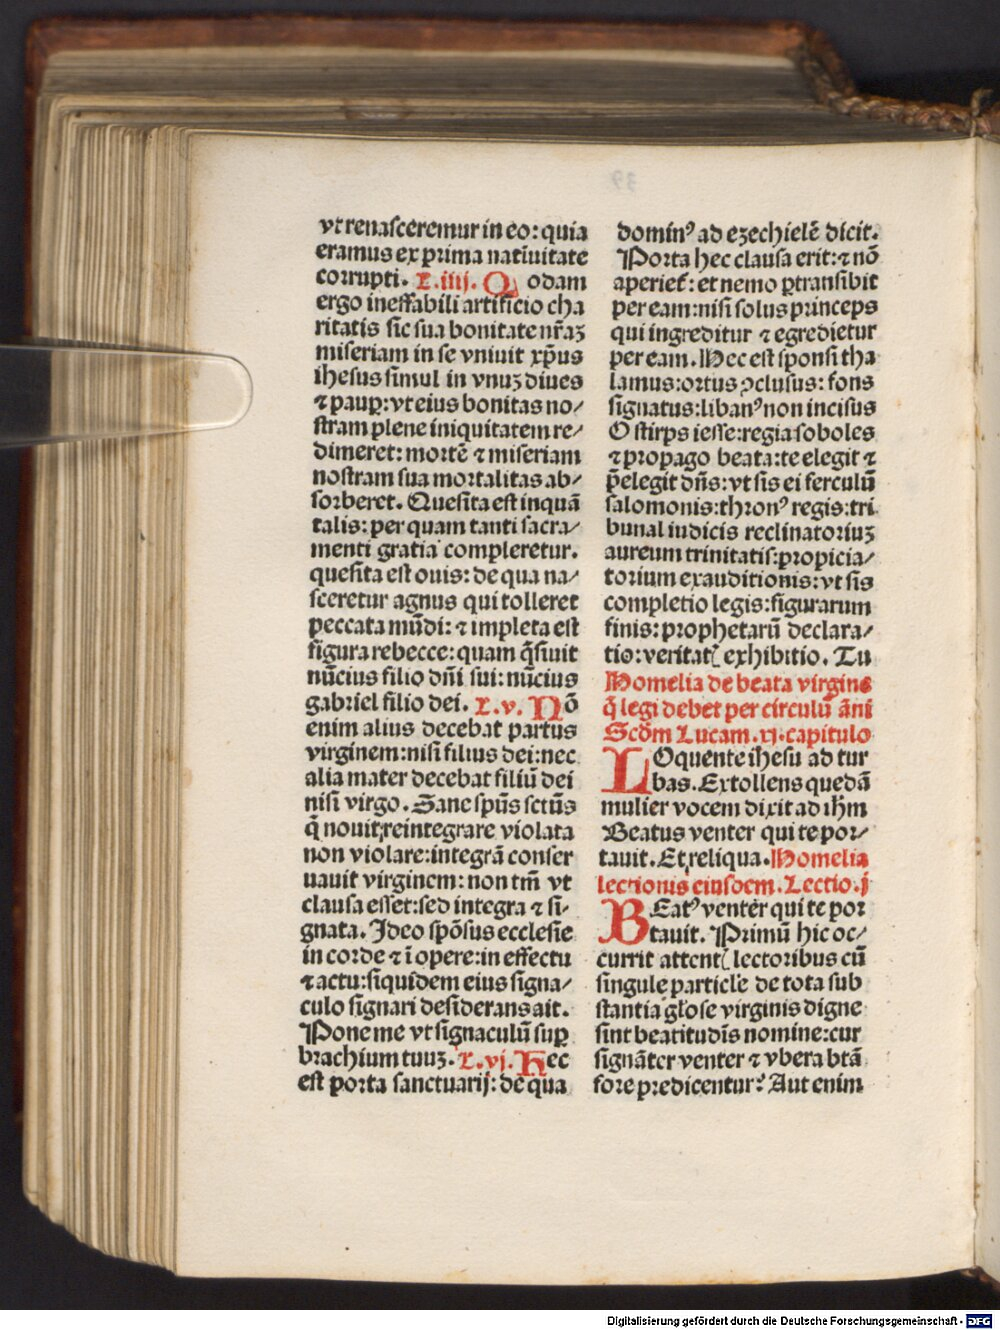 vt renasceremur in eo: quia
eramus ex prima natiuitate
corrupti. L.iiij. Q odam
ergo ineffabili artificio cha
ritatis sic sua bonitate nr̄aꝫ
miseriam in se vniuit xp̄us
ihesus simul in vnuꝫ diues
⁊ paup̲: vt eius bonitas no⸗
stram plene iniquitatem re⸗
dimeret: mortē ⁊ miseriam
nostram sua mortalitas ab⸗
sorberet. Quesita est inquā
talis: per quam tanti sacra⸗
menti gratia compleretur.
quesita est ouis: de qua na⸗
sceretur agnus qui tolleret
peccata mūdi: ⁊ impleta est
figura rebecce: quam q̄siuit
nūcius filio dn̄i sui: nūcius
gabriel filio dei. L.v. Nō
enim alius decebat partus
virginem: nisi filius dei: nec
alia mater decebat filiū dei
nisi virgo. Sane sp̄us sctūs
q̄ nouit reintegrare violata
non violare: integrā conser
uauit virginem: non tm̄ vt
clausa esset: sed integra ⁊ si⸗
gnata. Ideo spōsus ecclesie
in corde ⁊ ī opere: in effectu
⁊ actu: siquidem eius signa⸗
culo signari desiderans ait.
Pone me vt signaculū sup̲
brachium tuuꝫ. L.vj. Hec
est porta sanctuarij: de qua
dominꝰ ad ezechielē dicit.
Porta hec clausa erit: ⁊ nō
aperiet̛: et nemo p̲transibit
per eam: nisi solus princeps
qui ingreditur ⁊ egredietur
per eam. Hec est sponsi tha
lamus: ortus ꝯclusus: fons
signatus: libanꝰ non incisus
O stirps iesse: regia soboles
⁊ propago beata: te elegit ⁊
p̄elegit dn̄s: vt sis ei ferculū
salomonis: thronꝰ regis: tri
bunal iudicis reclinatoriuꝫ
aureum trinitatis: propicia⸗
torium exauditionis: vt sis
completio legis: figurarum
finis: prophetarū declara⸗
tio: veritatꝭ exhibitio. Tu
Homelia de beata virgine
q̄ legi debet per circulū āni
Scd̄m Lucam. xj. capitulo
LOquente ihesu ad tur
bas. Extollens quedā
mulier vocem dixit ad ihm̄
Beatus venter qui te por⸗
tauit. Et reliqua. Homelia
lectionis eiusdem. Lectio. j
BEatꝰ venter qui te por
tauit. Primū hic oc⸗
currit attentꝭ lectoribus cū
singule particule de tota sub
stantia gl̄ose virginis digne
sint beatitudīs nomine: cur
signāter venter ⁊ vbera btā
fore predicentur? Aut enim
Digitalisierung gefördert durch die Deutsche Forschungsgemeinschaft - DFG